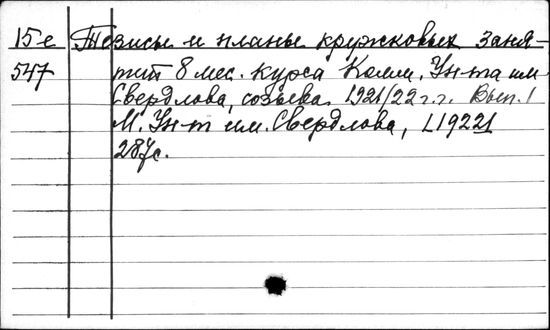 15е Тезисы и планы кружковых заня-
547 тий 8 мес. курса Комм. Ун-та им.
Свердлова, созыва 1921/22 г.г. Вып. 1
М. Ун-т им. Свердлова, [1922]
287с.